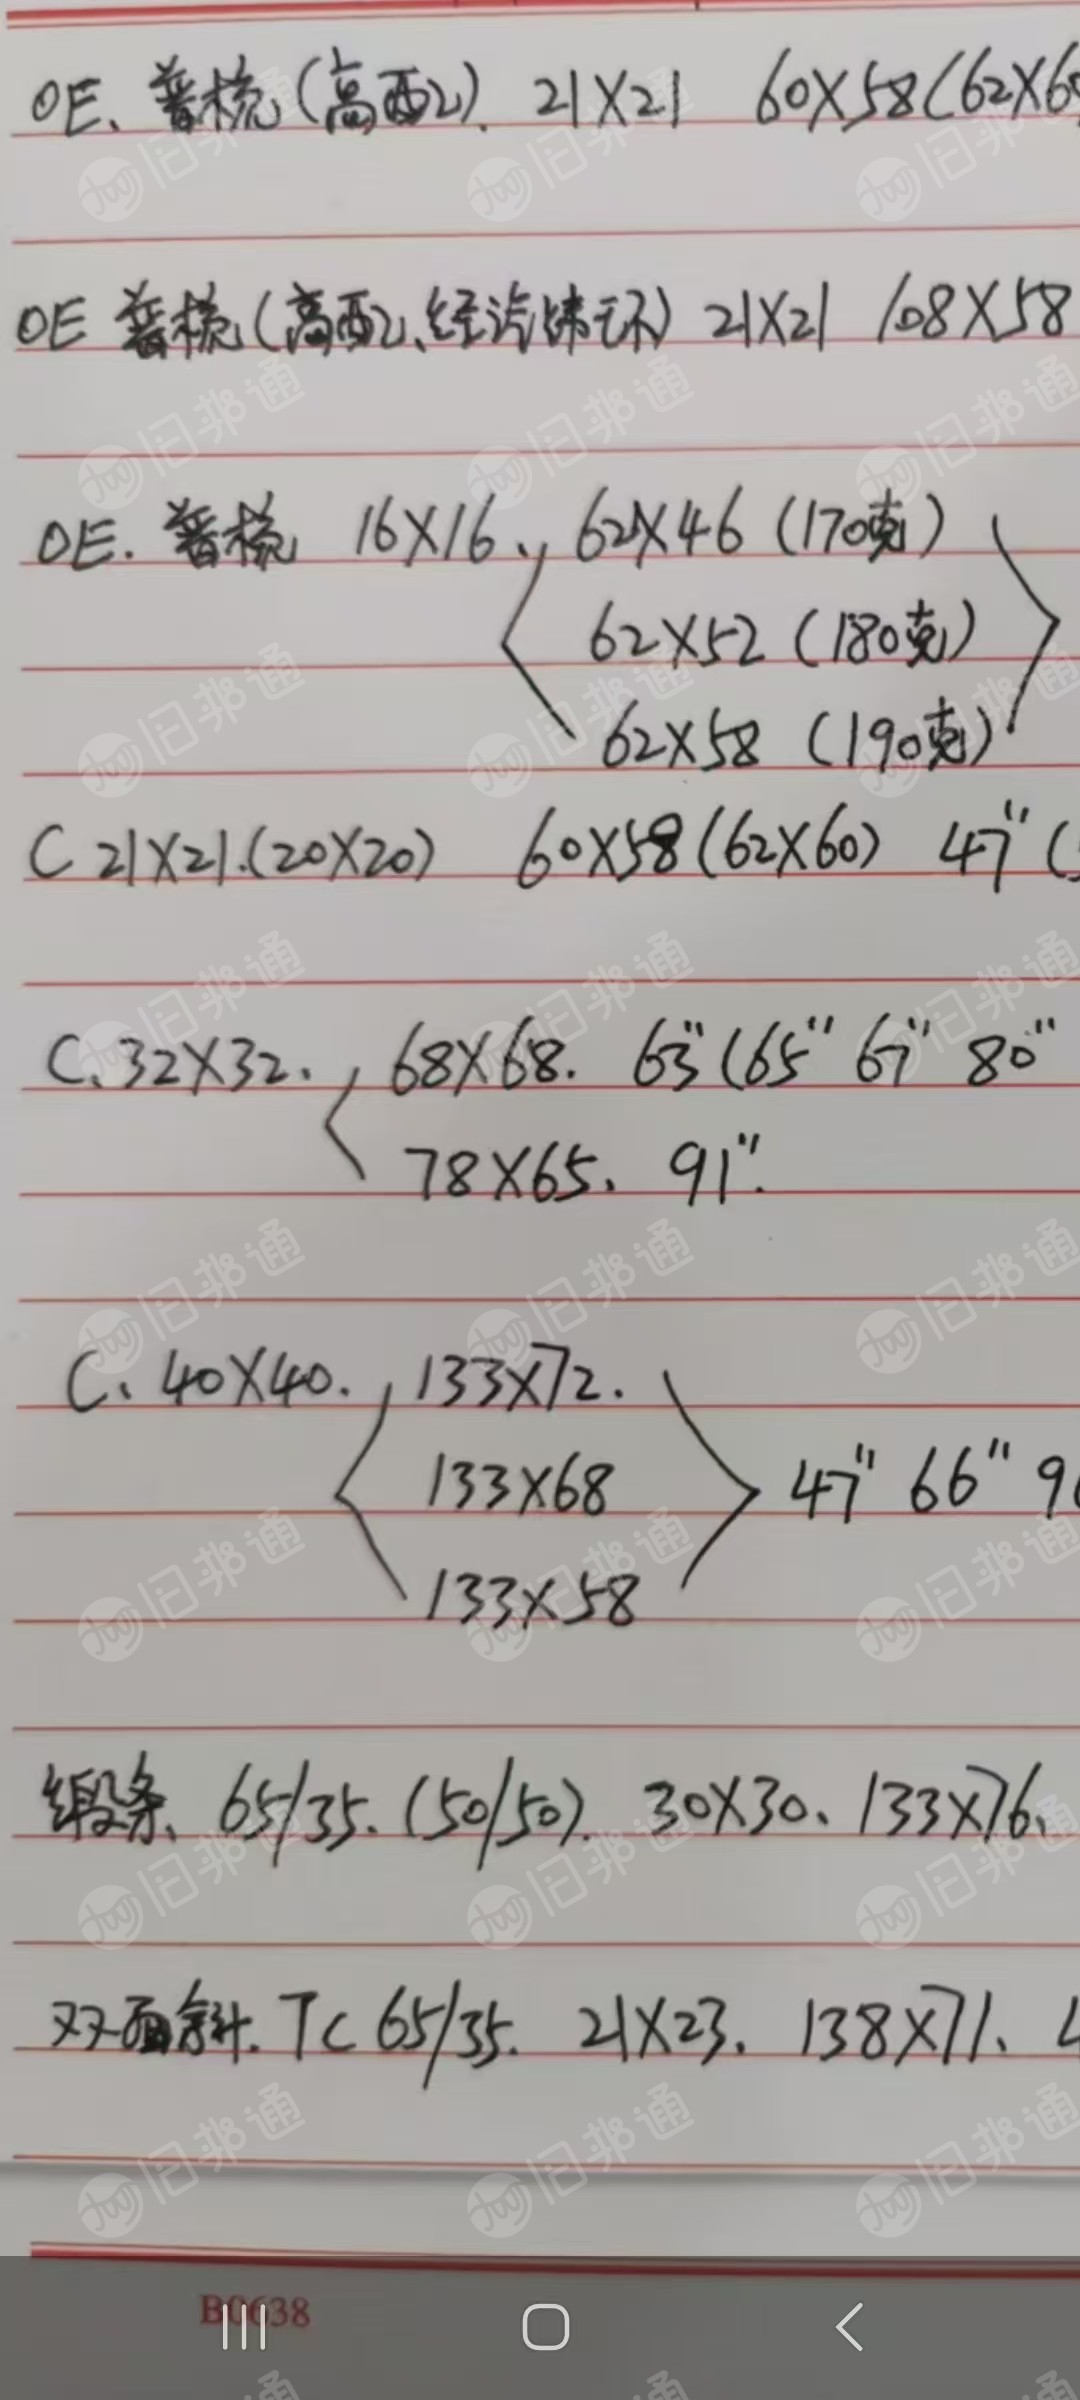 OE、普梳(高配)、21X21 60X58(62X60
OE 普梳(高配、经汽纬环) 21X21 108X58
OE. 普梳 16X16、, 62X46 (170克)
62X52 (180克)
62X58 (190克)
C 21X21.(20X20) 60X58(62X60) 47" (
C、32X32. 68X68. 63"(65" 67" 80"
78X65. 91".
C、40X40. 133X72.
133X68 47" 66" 9
133X58
缎条、65/35. (50/50). 30X30、133X76、
双面斜. TC 65/35. 21X23. 138X71、4
B0638
旧邦通